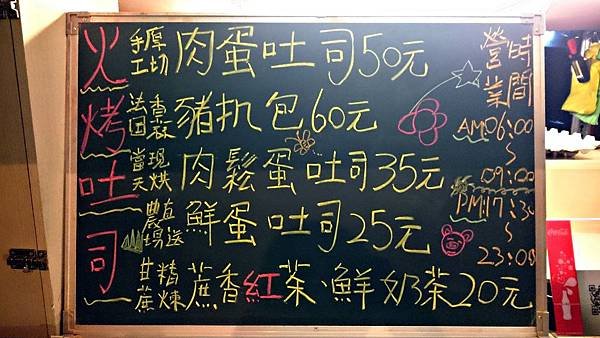 火烤吐司
手工厚切肉蛋吐司50元
法國香蒜豬扒包60元
當天現烘肉鬆蛋吐司35元
農場直送鮮蛋吐司25元
甘蔗精煉蔗香紅茶、鮮奶茶20元
營業時間
AM06:00
~
09:00
PM17:30
~
23:00